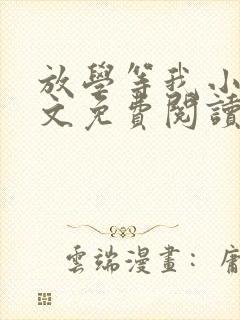 放學等我 小
文免費閱讀
雲端漫畫：庸